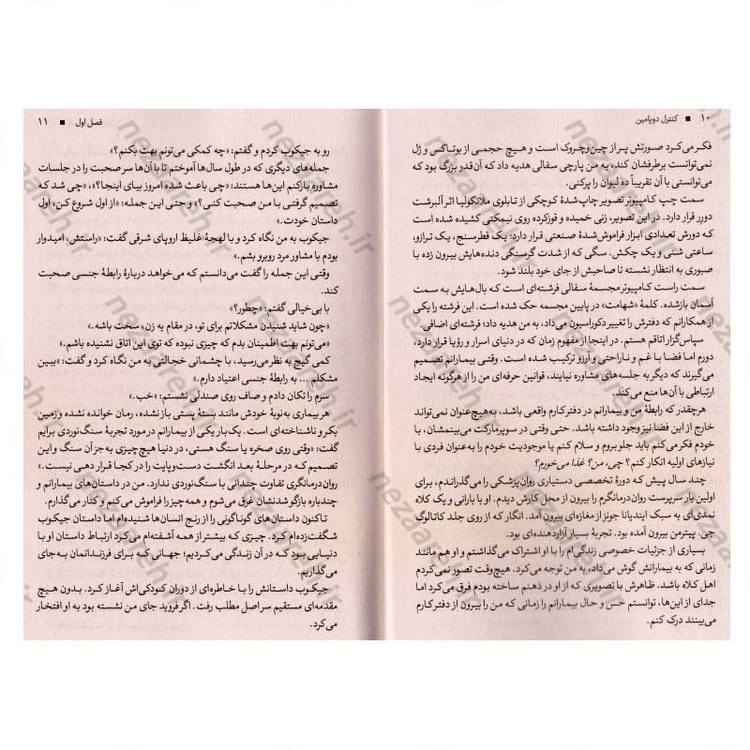 ۱۰ ■ کنترل دوپامین
فکر می‌کرد صورتش پر از چین‌وچروک است و هیچ حجمی از بوتاکس و ژل
نمی‌توانست برطرفشان کند، به من پارچی سفالی هدیه داد که آن‌قدر بزرگ بود که
می‌توانستی با آن تقریباً ده لیوان را پر کنی.
سمت چپ کامپیوتر تصویر چاپ‌شدهٔ کوچکی از تابلوی ملانکولیا اثر آلبرشت
دورر قرار دارد. در این تصویر، زنی خمیده و قوزکرده روی نیمکتی کشیده شده است
که دورش تعدادی ابزار فراموش‌شدهٔ صنعتی قرار دارد: یک قطرسنج، یک ترازو،
ساعتی شنی و یک چکش. سگی که از شدت گرسنگی دنده‌هایش بیرون زده با
صبوری به انتظار نشسته تا صاحبش از جای خود بلند شود.
سمت راست کامپیوتر مجسمهٔ سفالی فرشته‌ای است که بال‌هایش به سمت
آسمان باز شده. کلمهٔ «شهامت» در پایین مجسمه حک شده است. این فرشته را یکی
از همکارانم که دفترش را تغییر دکوراسیون می‌داد، به من هدیه داد؛ فرشته‌ای اضافی.
سپاس‌گزار اتاقم هستم. در اینجا از مفهوم زمان که در دنیای اسرار و رؤیا قرار دارد،
دورم اما فضا با غم و ناراحتی و آرزو ترکیب شده است. وقتی بیمارانم تصمیم
می‌گیرند که دیگر به جلسه‌های مشاوره نیایند، قوانین حرفه‌ای من را از هرگونه ایجاد
ارتباطی با آن‌ها منع می‌کند.
هرچقدر که رابطهٔ من و بیمارانم در دفتر کارم واقعی باشد، به‌هیچ‌عنوان نمی‌تواند
خارج از این فضا نیز وجود داشته باشد. حتی وقتی در سوپرمارکت می‌بینمشان، با
خودم فکر می‌کنم باید جلو بروم و سلام کنم یا موجودیت خودم را به‌عنوان فردی با
نیازهای اولیه انکار کنم؟ چی، من؟ غذا می‌خورم؟
چند سال پیش که دورهٔ تخصصی دستیاری روان‌پزشکی را می‌گذراندم، برای
اولین بار سرپرست روان‌درمانگرم را بیرون از محل کارش دیدم. او با بارانی و یک کلاه
نمدی‌ای به سبک ایندیانا جونز از مغازه‌ای بیرون آمد. انگار که از روی جلد کاتالوگ
جی. پیترمن بیرون آمده بود. تجربهٔ بسیار آزاردهنده‌ای بود.
بسیاری از جزئیات خصوصی زندگی‌ام را با او اشتراک می‌گذاشتم و او هم مانند
زمانی که به بیمارانش گوش می‌داد، به من توجه می‌کرد. هیچ‌وقت تصور نمی‌کردم
اهل کلاه باشد. ظاهرش با تصویری که از او در ذهنم ساخته بودم فرق می‌کرد اما
جدای از این‌ها، توانستم حس و حال بیمارانم را زمانی که من را بیرون از دفتر کارم
می‌بینند درک کنم.
فصل اول ■ ۱۱
رو به جیکوب کردم و گفتم: «چه کمکی می‌تونم بهت بکنم؟»
جمله‌های دیگری که در طول سال‌ها آموختم تا با آن‌ها سر صحبت را در جلسات
مشاوره باز کنم این‌ها هستند: «چی باعث شده امروز بیای اینجا؟»، «چی شد که
تصمیم گرفتی با من صحبت کنی؟» و حتی این جمله: «از اول شروع کن، اول
داستان خودت.»
جیکوب به من نگاه کرد و با لهجهٔ غلیظ اروپای شرقی گفت: «راستش، امیدوار
بودم با مشاور مرد روبرو بشم.»
وقتی این جمله را گفت می‌دانستم که می‌خواهد دربارهٔ رابطهٔ جنسی صحبت
کند.
با بی‌خیالی گفتم: «چطور؟»
«چون شاید شنیدن مشکلاتم برای تو، در مقام یه زن، سخت باشه.»
«می‌تونم بهت اطمینان بدم که چیزی نبوده که توی این اتاق نشنیده باشم.»
کمی گیج به نظر می‌رسید، با چشمانی خجالتی به من نگاه کرد و گفت: «ببین
مشکلم ... به رابطهٔ جنسی اعتیاد دارم.»
سرم را تکان دادم و صاف روی صندلی نشستم: «خب.»
هر بیماری به‌نوبهٔ خودش مانند بستهٔ پستی باز نشده، رمان خوانده نشده و زمین
بکر و ناشناخته‌ای است. یک بار یکی از بیمارانم در مورد تجربهٔ سنگ‌نوردی برایم
گفت: «وقتی روی صخره یا سنگ هستی، در دنیا هیچ‌چیزی به‌جز آن سنگ و این
تصمیم که در مرحلهٔ بعد انگشت دست و پایت را در کجا قرار دهی نیست.»
روان‌درمانگری تفاوت چندانی با سنگ‌نوردی ندارد. من در داستان‌های بیمارانم و
چندباره بازگو شدنشان غرق می‌شوم و همه‌چیز را فراموش می‌کنم و کنار می‌گذارم.
تاکنون داستان‌های گوناگونی را از رنج انسان‌ها شنیده‌ام اما داستان جیکوب
شگفت‌زده‌ام کرد. چیزی که بیشتر از همه آشفته‌ام می‌کرد ارتباط داستان او با
دنیایی بود که در آن زندگی می‌کردیم؛ جهانی که برای فرزندانمان به‌جای
می‌گذاریم.
جیکوب داستانش را با خاطره‌ای از دوران کودکی‌اش آغاز کرد. بدون هیچ
مقدمه‌ای مستقیم سر اصل مطلب رفت. اگر فروید جای من نشسته بود به او افتخار
می‌کرد.
nezaarsh.ir